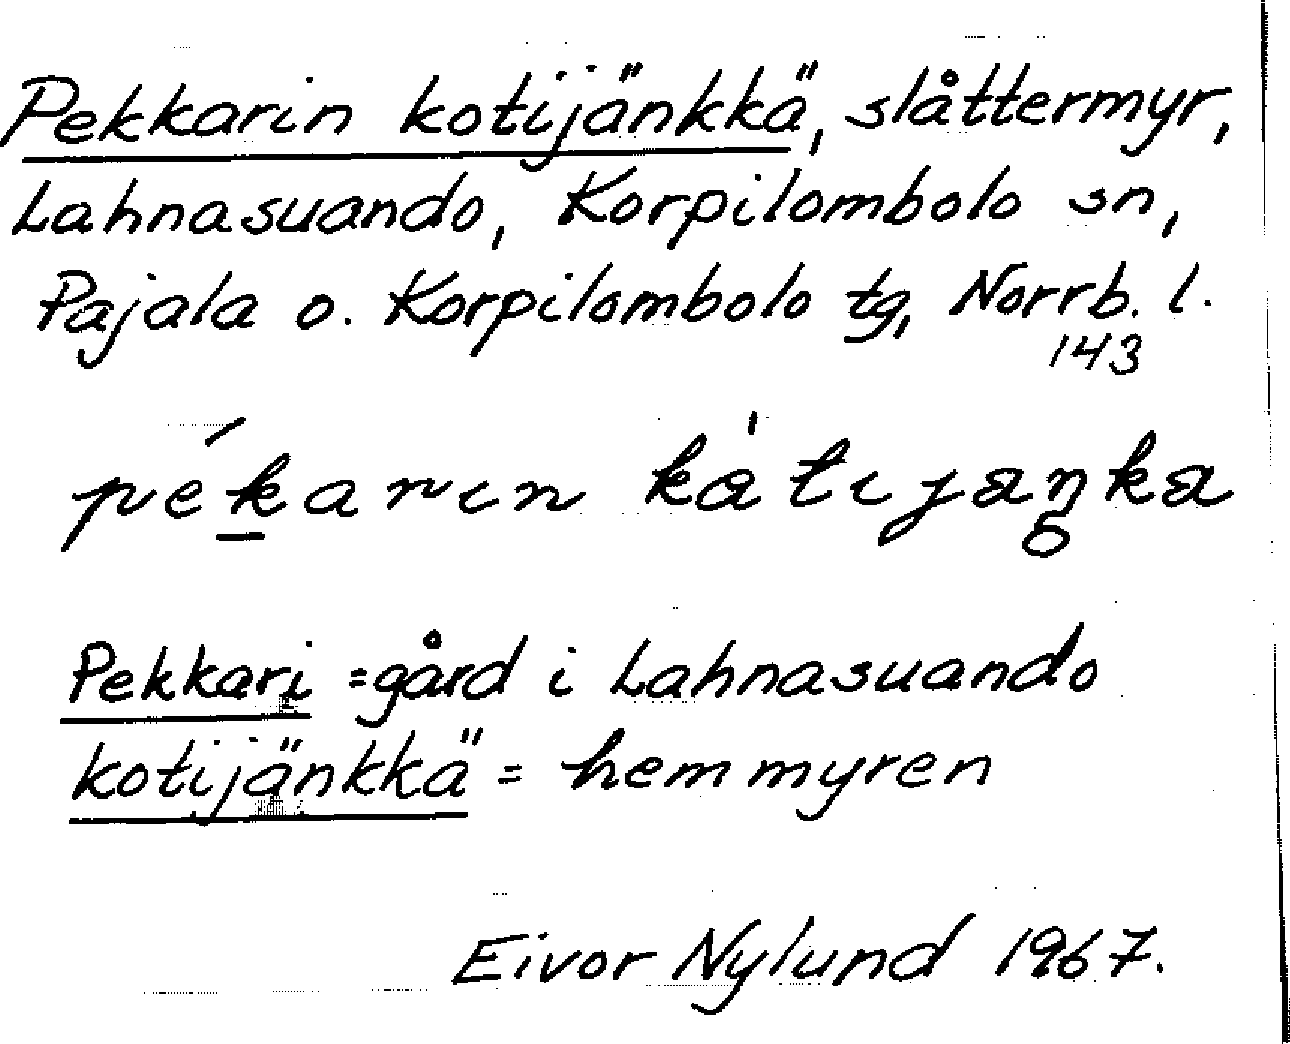 Pekkarin kotijänkkä, slåttermyr,
Lahnasuando, Korpilombolo sn,
Pajala o. Korpilombolo tg, Norrb. l.
143
pékarın kåtıjaŋka
Pekkari = gård i Lahnasuando
kotijänkkä = hemmyren
Eivor Nylund 1967.